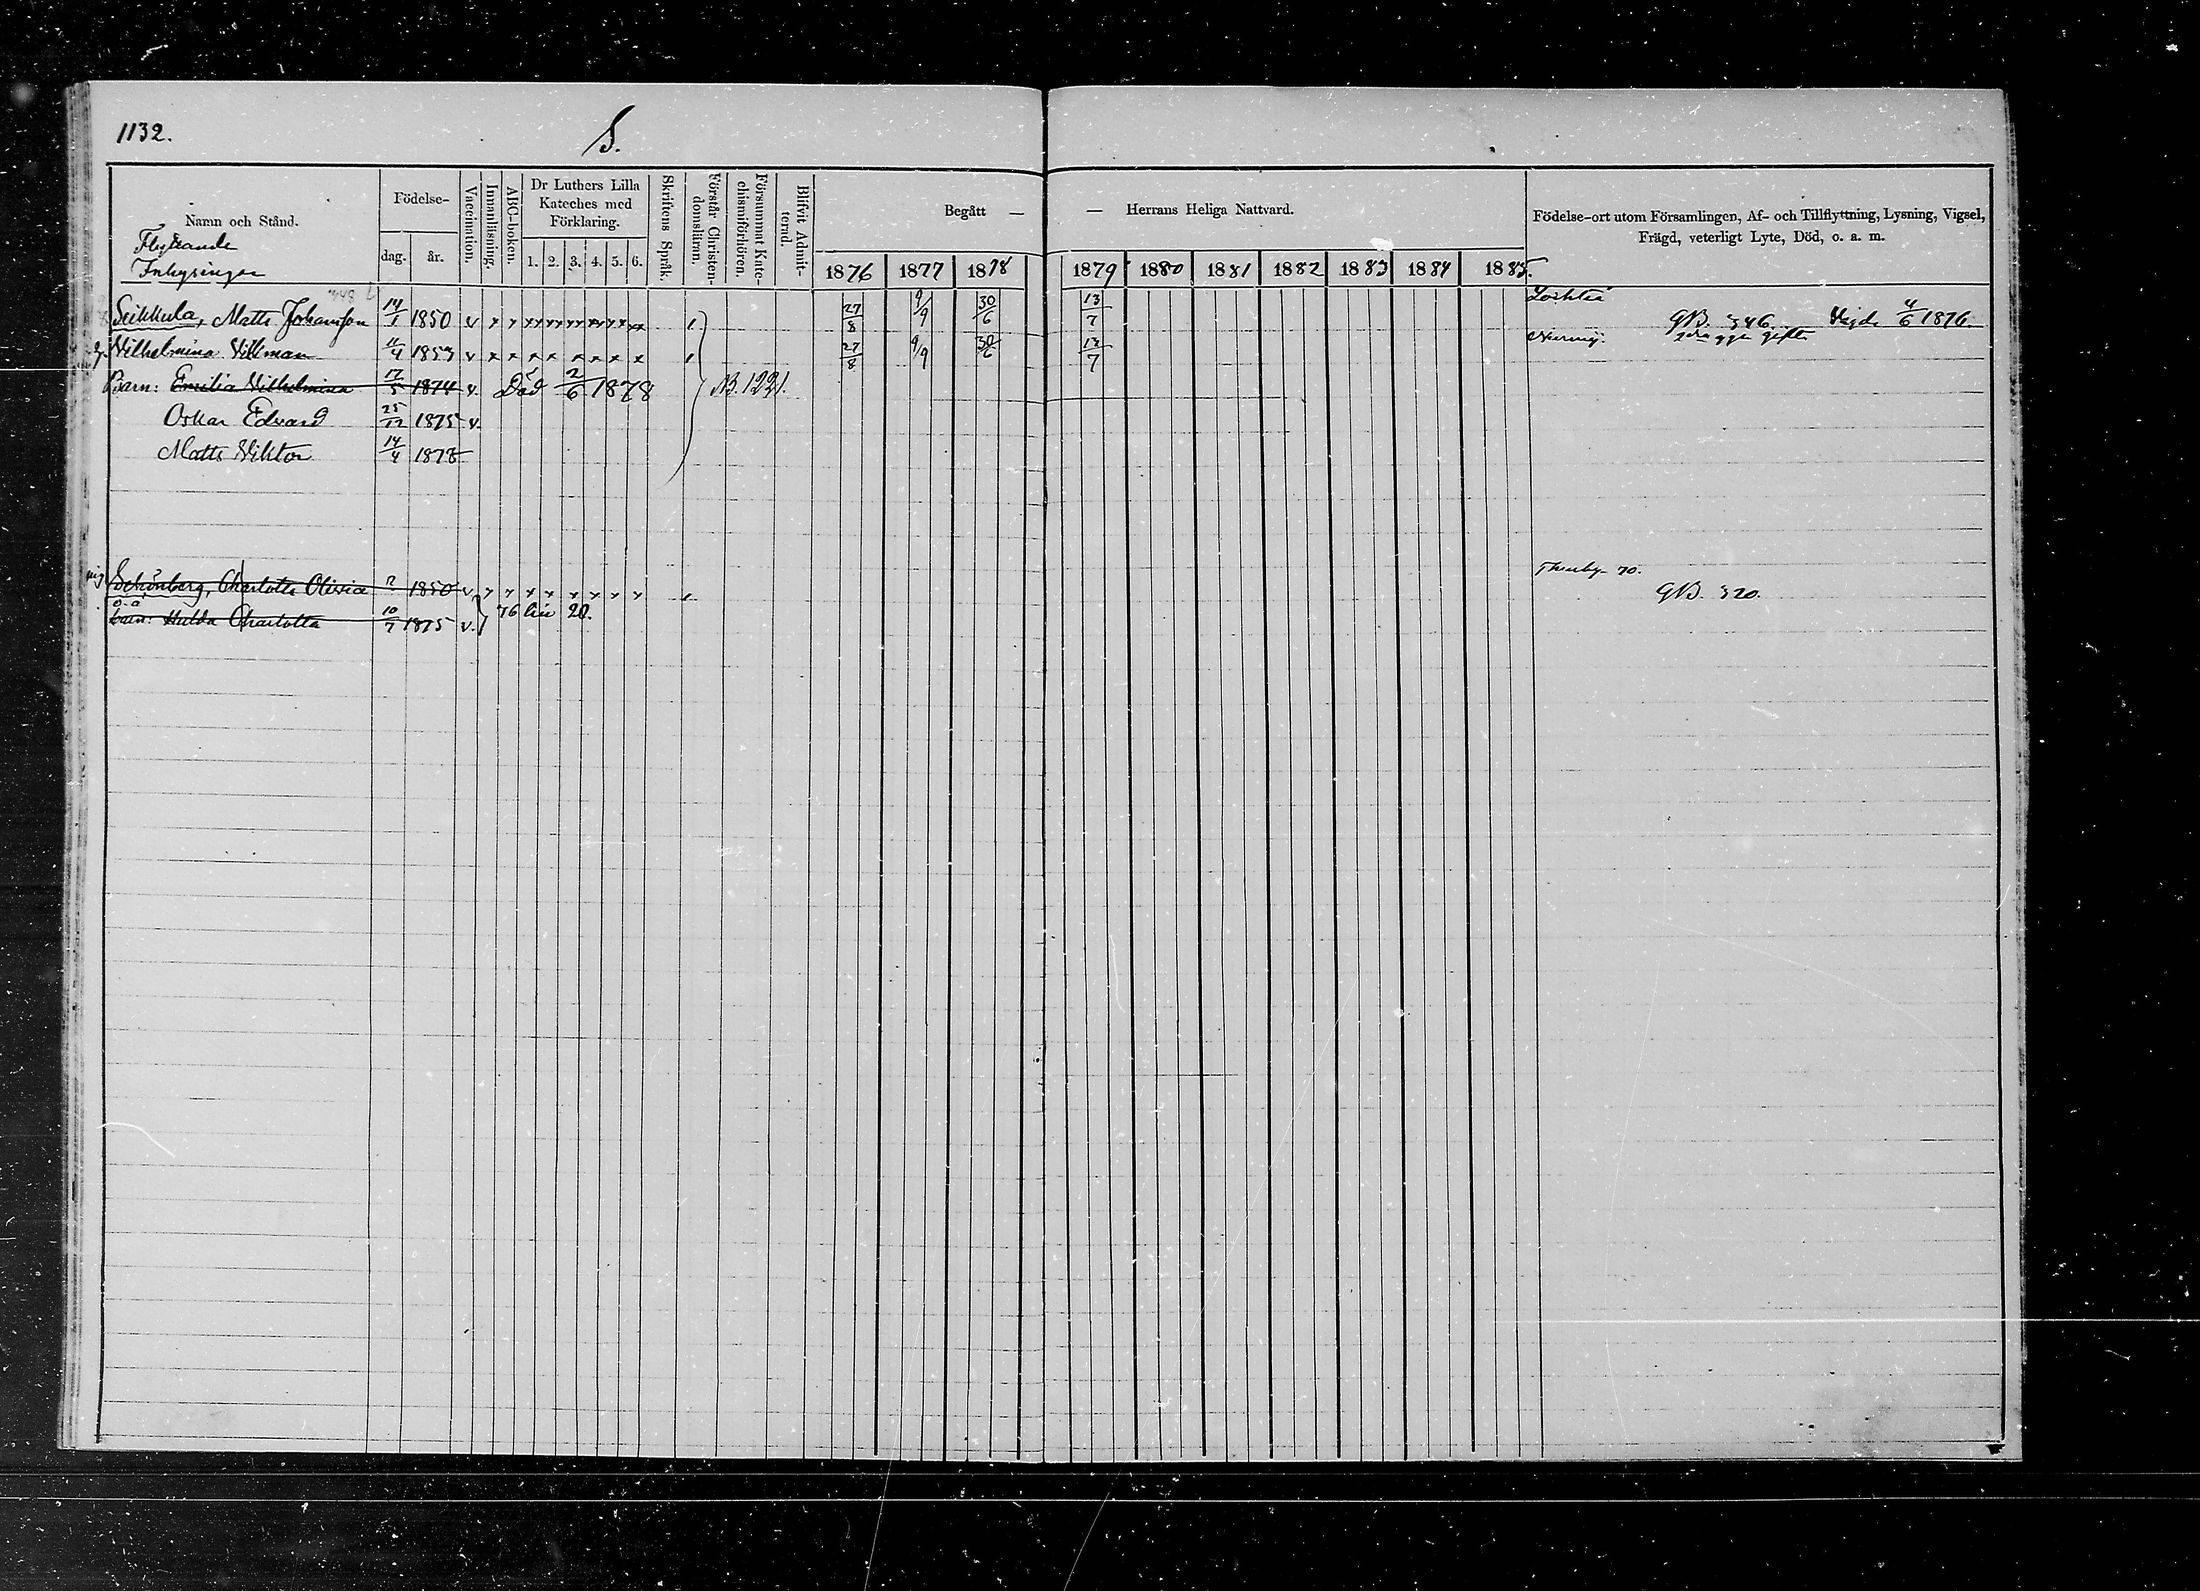 1132.
S.
Namn och Stånd.
Flyttande
Inhysingar
Födelse-
dag. år.
Vaccination.
Innanläsning.
ABC-boken.
Dr Luthers Lilla
Kateches med
Förklaring.
1. 2. 3. 4. 5. 6.
Skriftens Språk.
Förstår Christen-
domslärnn.
Försummat Kate-
chismiförhören.
Blifvit Admit-
terad.
Begått — — Herrans Heliga Nattvard.
1876 1877 1878 1879 1880 1881 1882 1883 1884 1885.
Födelse-ort utom Församlingen, Af- och Tillflyttning, Lysning, Vigsel,
Frägd, veterligt Lyte, Död, o. a. m.
Lochteå
Seikkula, Matts Johansson 14/1 1850 v x x x x x x x x 27/8 9/9 30/6 13/7 GB. 346. Vigde 4/6 1876.
Vilhelmina Villman 11/4 1853 v x x x x x x x x 27/8 9/9 30/6 13/7
Barn: Emilia Vilhelmina 17/5 1874 v. Död 2/6 1878 NB. 1221.
Oskar Edvard 25/12 1875 v.
Matts Viktor 14/4 1878
Schönberg, Charlotta Olivia 1850 v x x x x x x x x GB. 320.
o. ä.
barn: Hulda Charlotta 10/7 1875 v. 76 20.